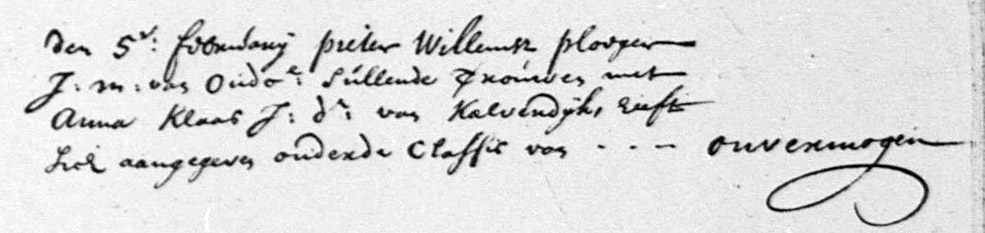 Den 5e: febrùarij pieter Willemsz ploeger
J: m: van Oùdo.e: Sùllende Troùwen met
Anna Klaas J: d.r: van Kalvendijk, Eeft
Sich aangegeven onder de Classis van - - - onvermogen